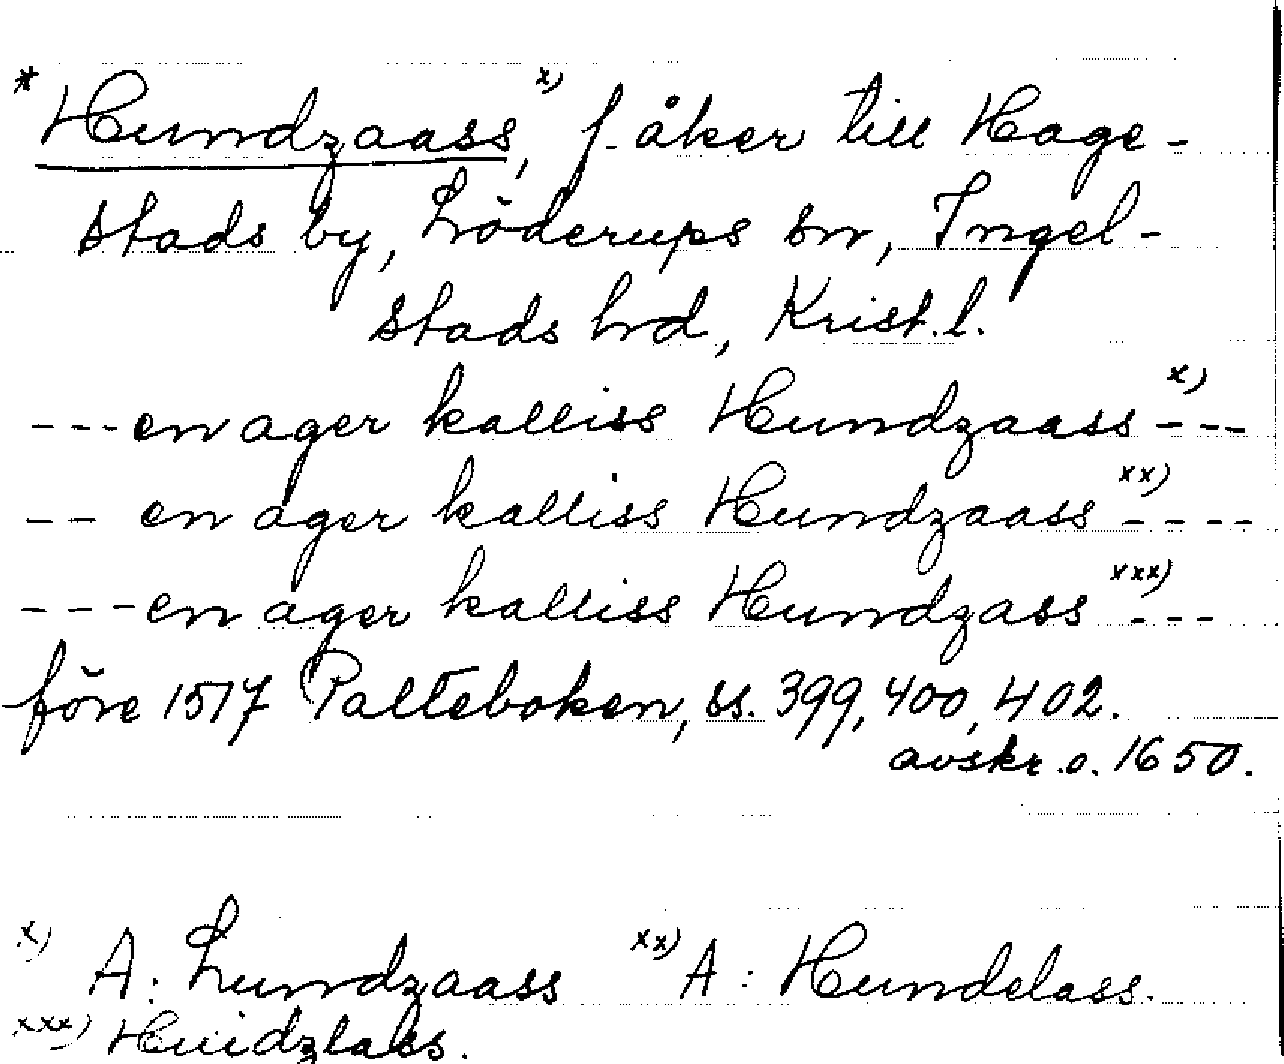 * Hundzaass, x) f. åker till Hage-
stads by, Löderups sn, Ingel-
stads hd, Krist. l.
---en ager kalliss Hundzaass x) ---
-- en ager kalliss Hundzaass xx) ----
---en ager kalliss Hundzass xxx) ---
före 1517 Palteboken, ss. 399, 400, 402.
avskr. o. 1650.
x) A: Lundzaass xx) A: Hundelass.
xxx) Huidzlass.